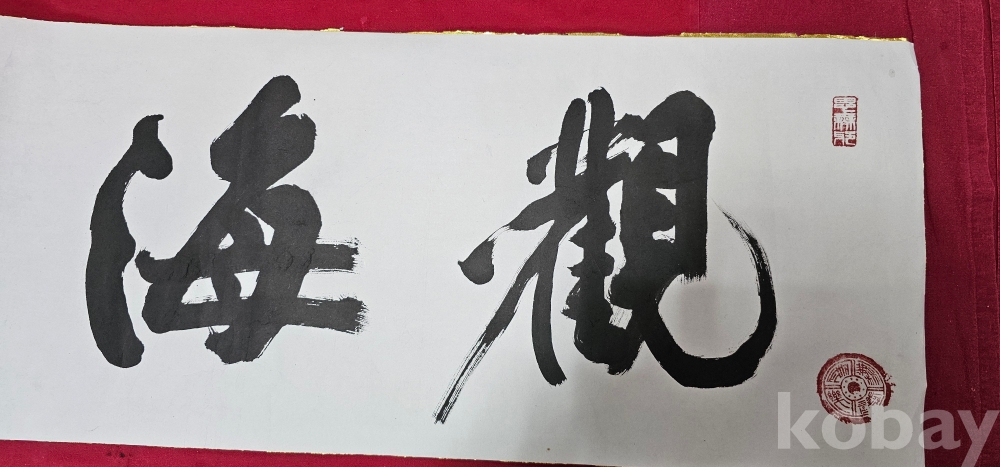 觀海
kobay